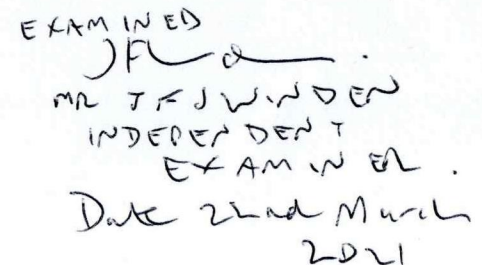 EXAMINED
MR J F J WINDEN
INDEPENDENT
EXAMINER.
Date 22nd March
2021